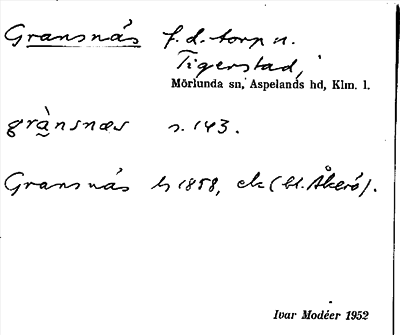 Gransnäs f.d. torp n.
Tigerstad,
Mörlunda sn, Aspelands hd, Klm. l.
grànsnæs s. 143.
Gransnäs h 1858, ek (bl. Åkerö).
Ivar Modéer 1952